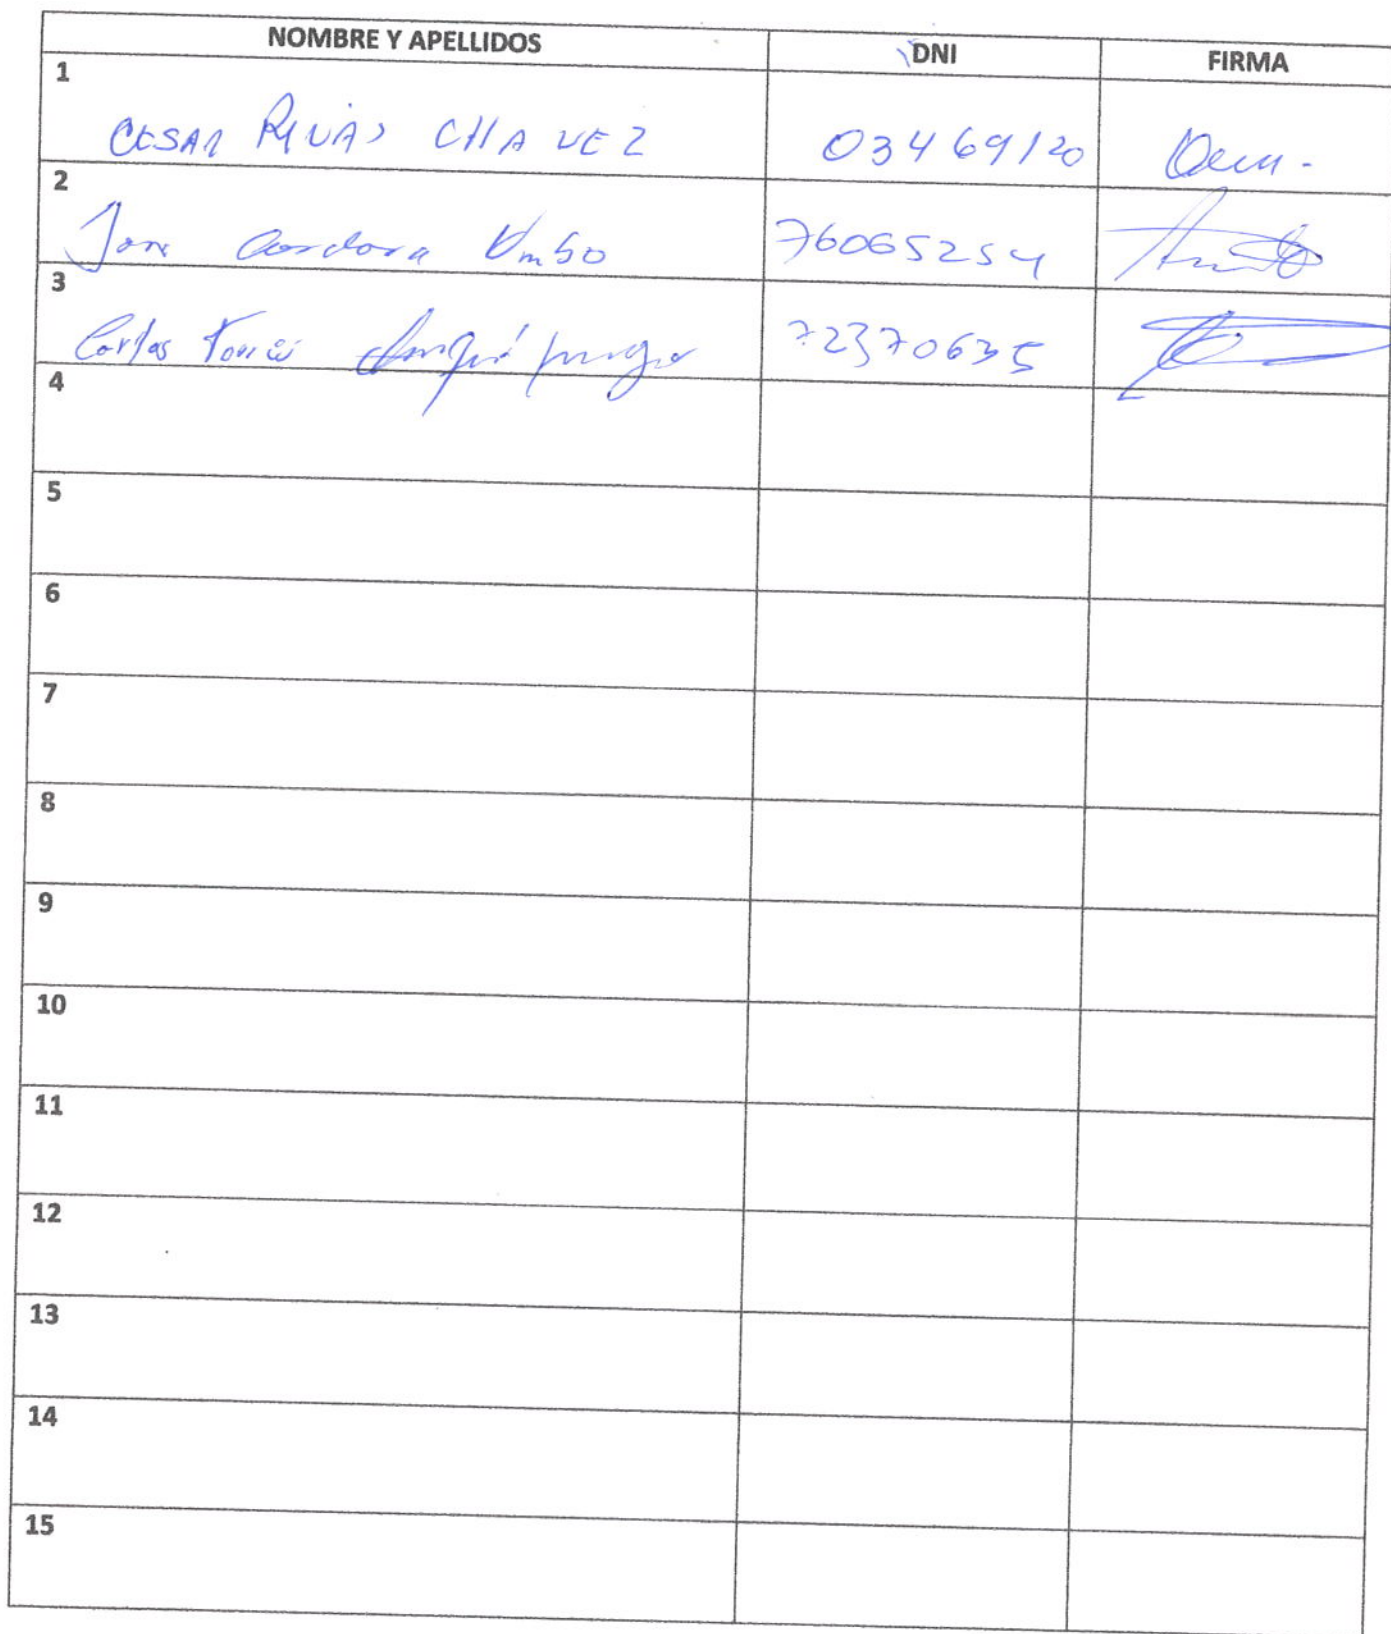 NOMBRE Y APELLIDOS DNI FIRMA
1
CESAR RIVAS CHAVEZ 03469120
2
Cordova 76065254
3
Carlos 72370635
4
5
6
7
8
9
10
11
12
13
14
15